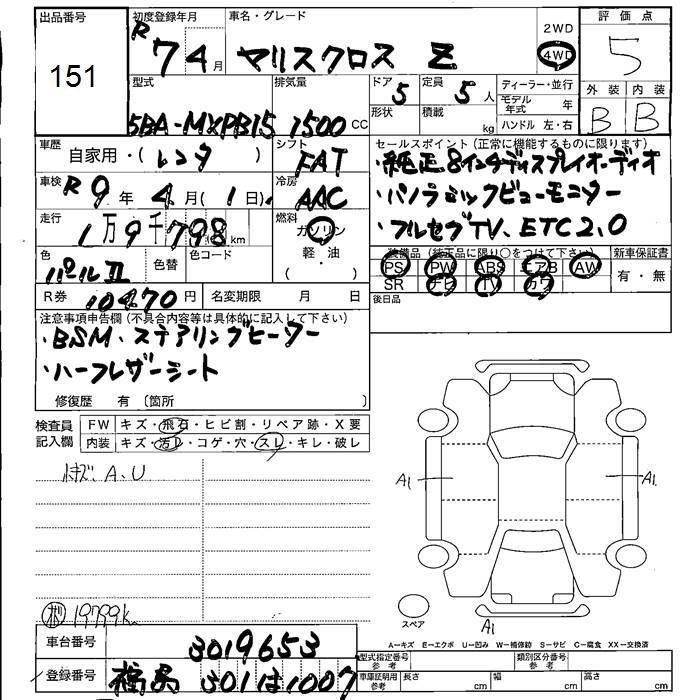 出品番号
151
初度登録年月
R 7 4月
車名・グレード
ヤリスクロス Z
2WD
4WD
評価点
5
外装 内装
B B
型式
5BA-MXPB15
排気量
1500 CC
ドア 5
形状
定員 5 人
積載 kg
ディーラー・並行
モデル年式 年
ハンドル 左・右
車歴
自家用・(レンタ)
シフト
FAT
車検
R 9年 4月(1日)
冷房
AAC
走行
1万9千798km
燃料
ガソリン
軽・油
( ・ )
色
パールⅡ
色替
色コード
R券 10470円
名変期限 月 日
セールスポイント(正常に機能するものに限ります)
・純正8インチディスプレイオーディオ
・パノラミックビューモニター
・フルセグTV、ETC2.0
装備品(純正品に限り○をつけて下さい)
PS PW ABS エアB AW
SR ナビ TV カワ
新車保証書
有・無
後日品
注意事項申告欄(不具合内容等は具体的に記入して下さい)
・BSM・ステアリングヒーター
・ハーフレザーシート
修復歴 有 〔箇所 〕
検査員記入欄
FW キズ・飛石・ヒビ割・リペア跡・X要
内装 キズ・汚レ・コゲ・穴・スレ・キレ・破レ
小キズ A、U
19799k
A1
A1
A1
スペア
A=キズ E=エクボ U=凹み W=補修跡 S=サビ C=腐食 XX=交換済
車台番号
3019653
登録番号
福島 301は1007
型式指定番号
参考
類別区分番号
参考
車庫証明用
参考
長さ cm
幅 cm
高さ cm